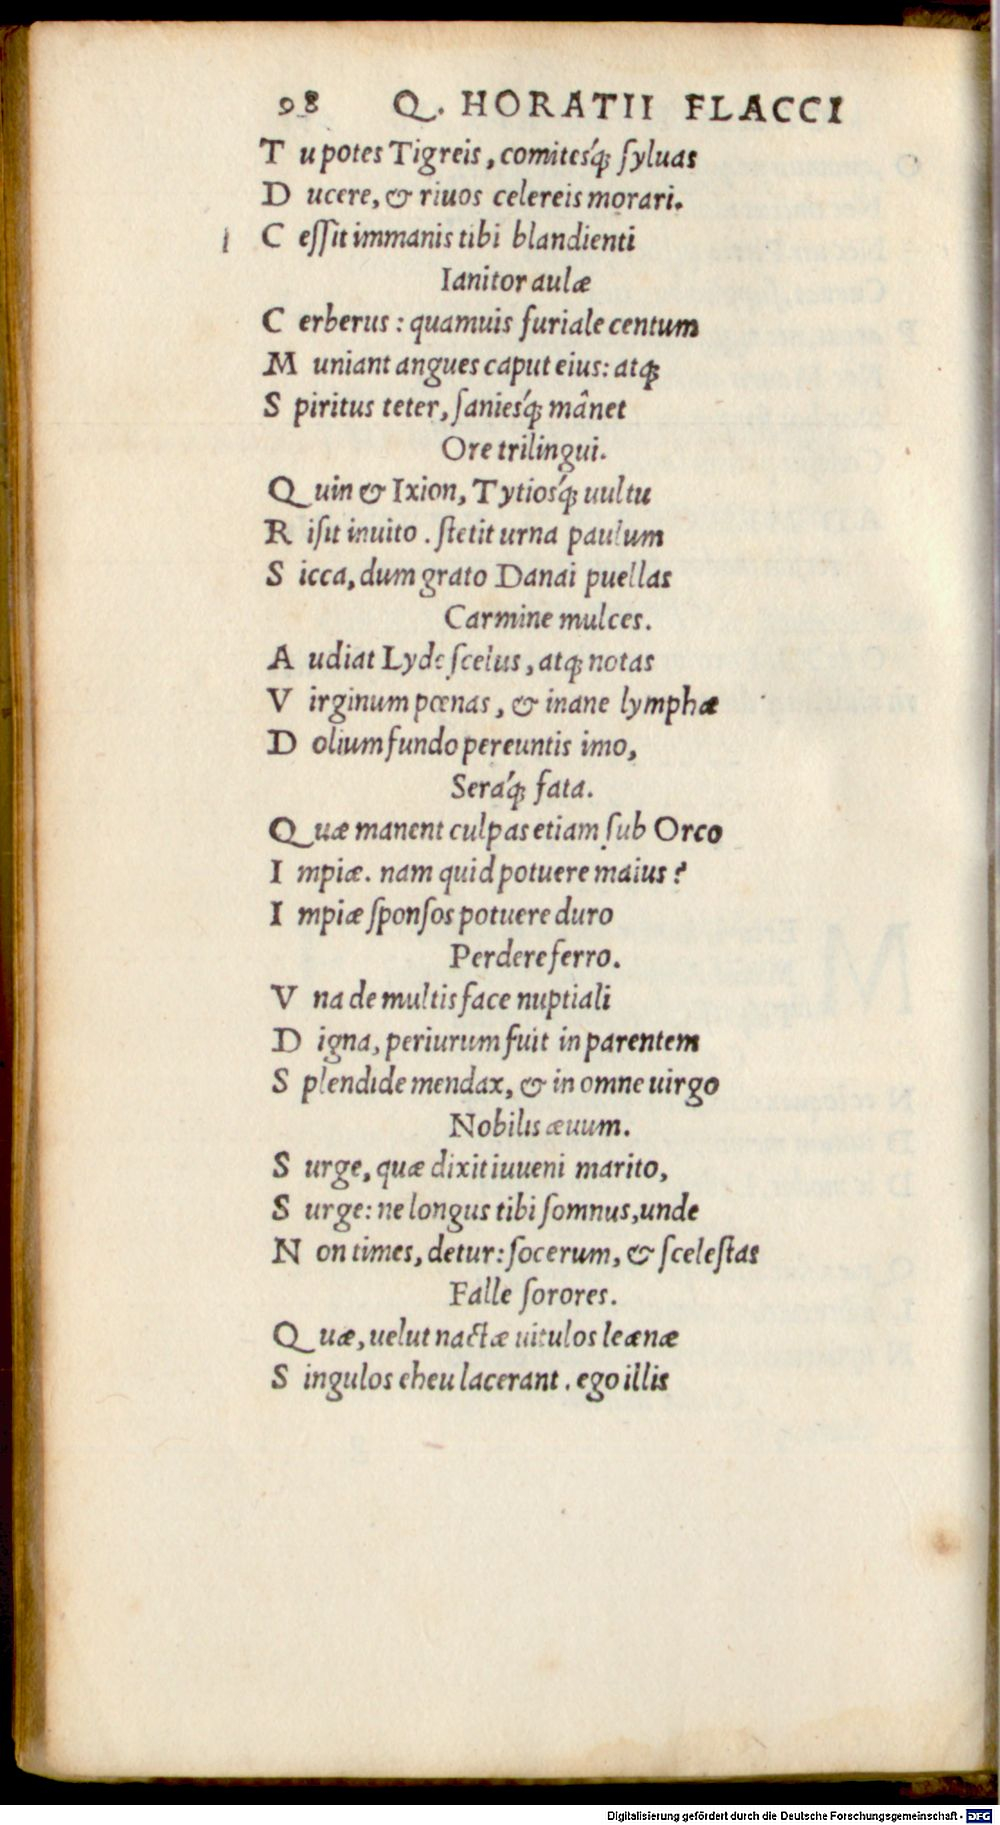 98 Q. HORATII FLACCI
T u potes Tigreis, comitesq́; ſyluas
D ucere, & riuos celereis morari.
C eſſit immanis tibi blandienti
Ianitor aulæ
C erberus : quamuis furiale centum
M uniant angues caput eius: atq;
S piritus teter, ſaniesq́; mânet
Ore trilingui.
Q uin & Ixion, Tytiosq́; uultu
R iſit inuito . ſtetit urna paulum
S icca, dum grato Danai puellas
Carmine mulces.
A udiat Lyde ſcelus, atq; notas
V irginum pœnas, & inane lymphæ
D olium fundo pereuntis imo,
Seraq́; fata.
Q uæ manent culpas etiam ſub Orco
I mpiæ. nam quid potuere maius?
I mpiæ ſponſos potuere duro
Perdere ferro.
V na de multis face nuptiali
D igna, periurum fuit in parentem
S plendide mendax, & in omne uirgo
Nobilis æuum.
S urge, quæ dixit iuueni marito,
S urge: ne longus tibi ſomnus, unde
N on times, detur: ſocerum, & ſceleſtas
Falle ſorores.
Q uæ, uelut nactæ uitulos leænæ
S ingulos eheu lacerant . ego illis
Digitalisierung gefördert durch die Deutsche Forschungsgemeinschaft - DFG